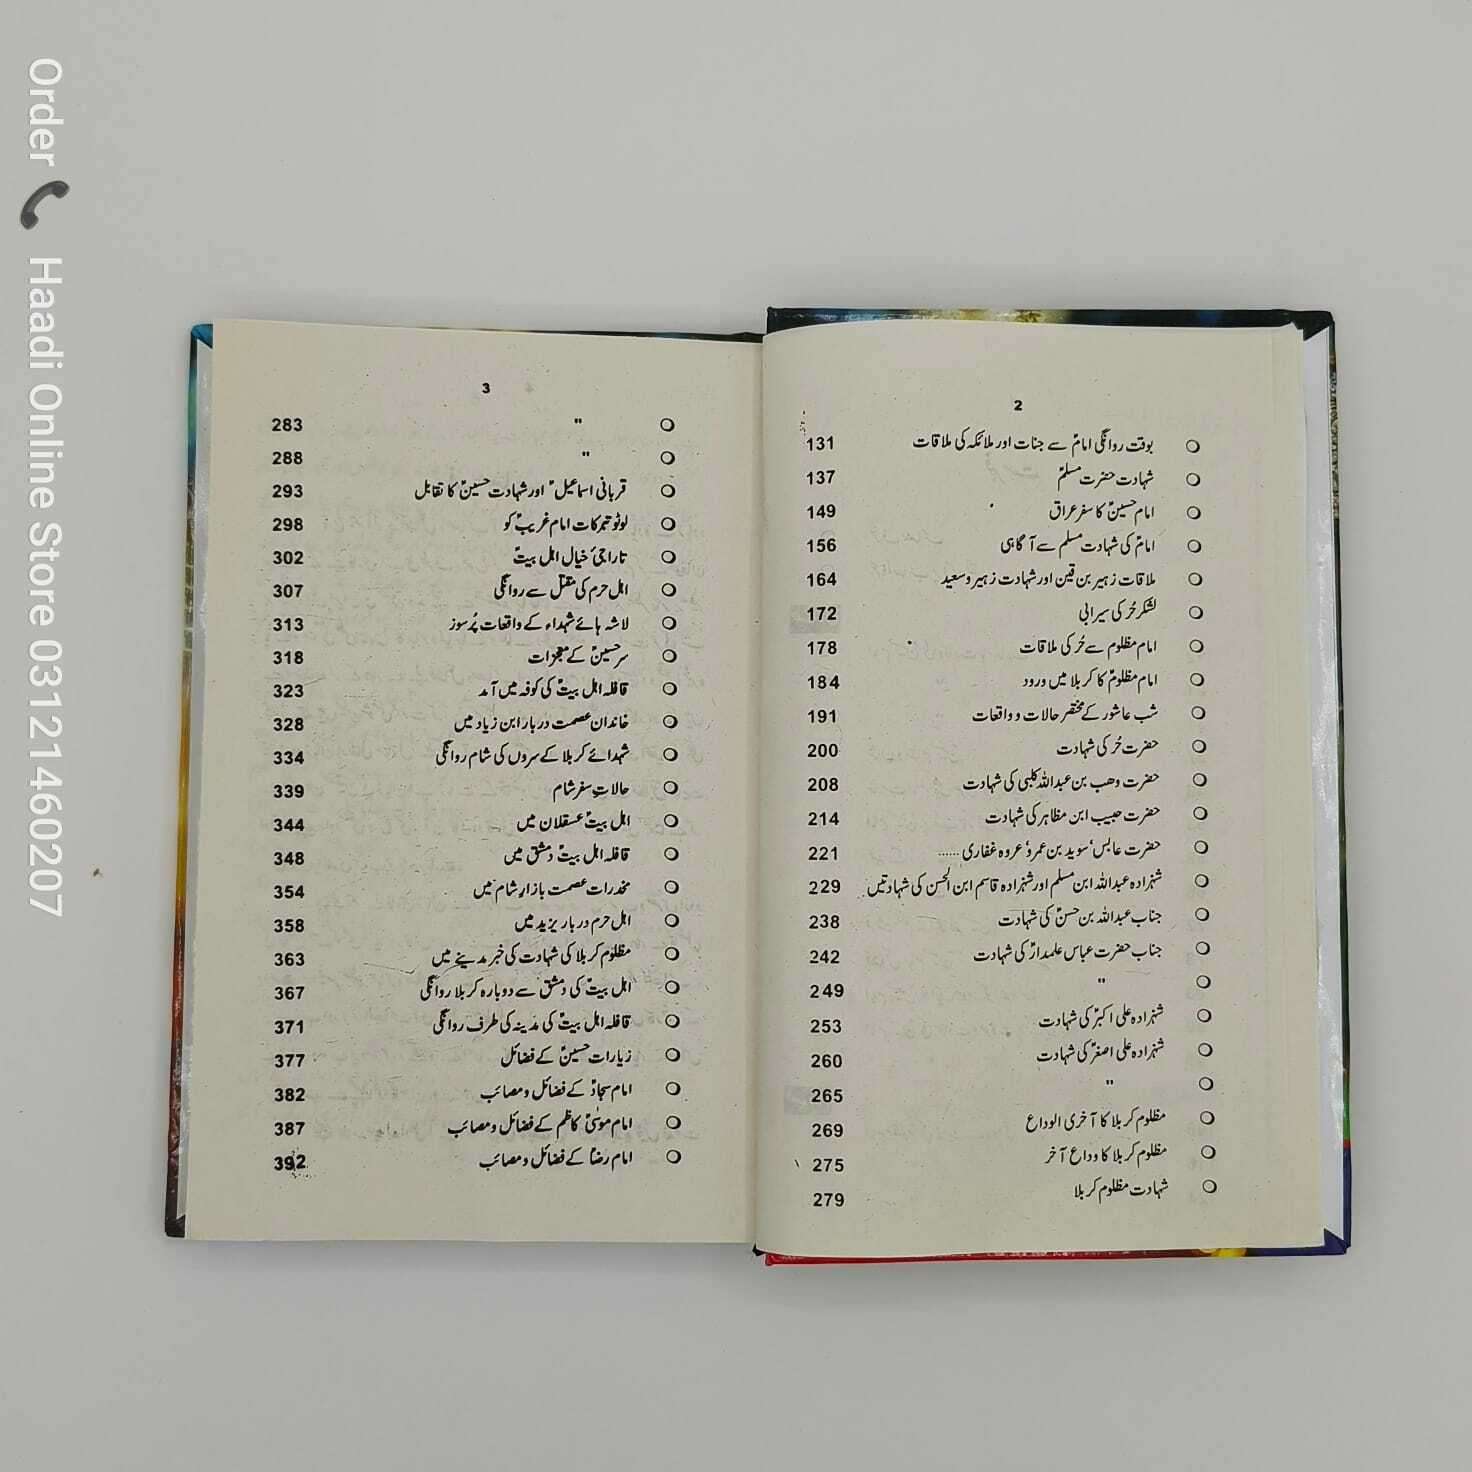 Order 📞 Haadi Online Store 03121460207
2
بوقت روانگی امامؑ سے جنات اور ملائکہ کی ملاقات 131
شہادت حضرت مسلمؑ 137
امام حسینؑ کا سفر عراق 149
امامؑ کی شہادت مسلم سے آگاہی 156
ملاقات زہیر بن قین اور شہادت زہیر و سعید 164
لشکر حُر کی سیرابی 172
امام مظلوم سے حُر کی ملاقات 178
امام مظلومؑ کا کربلا میں ورود 184
شب عاشور کے مختصر حالات و واقعات 191
حضرت حُر کی شہادت 200
حضرت وھب بن عبداللہ کلبی کی شہادت 208
حضرت حبیب ابن مظاہر کی شہادت 214
حضرت عابس، سوید بن عمرو، عروہ غفاری ...... 221
شہزادہ عبداللہ ابن مسلم اور شہزادہ قاسم ابن الحسن کی شہادتیں 229
جناب عبداللہ بن حسنؑ کی شہادت 238
جناب حضرت عباس علمدارؑ کی شہادت 242
" 249
شہزادہ علی اکبرؑ کی شہادت 253
شہزادہ علی اصغرؑ کی شہادت 260
" 265
مظلوم کربلا کا آخری الوداع 269
مظلوم کربلا کا وداع آخر 275
شہادت مظلوم کربلا 279
3
" 283
" 288
قربانی اسماعیلؑ اور شہادت حسینؑ کا تقابل 293
لوٹو تبرکات امام غریبؑ کو 298
تاراجیٔ خیال اہل بیتؑ 302
اہل حرم کی مقتل سے روانگی 307
لاشہ ہائے شہداء کے واقعات پُرسوز 313
سر حسینؑ کے معجزات 318
قافلہ اہل بیتؑ کی کوفہ میں آمد 323
خاندان عصمت دربار ابن زیاد میں 328
شہدائے کربلا کے سروں کی شام روانگی 334
حالات سفر شام 339
اہل بیتؑ عسقلان میں 344
قافلہ اہل بیتؑ دمشق میں 348
مخدرات عصمت بازار شام میں 354
اہل حرم دربار یزید میں 358
مظلوم کربلا کی شہادت کی خبر مدینے میں 363
اہل بیتؑ کی دمشق سے دوبارہ کربلا روانگی 367
قافلہ اہل بیتؑ کی مدینہ کی طرف روانگی 371
زیارات حسینؑ کے فضائل 377
امام سجادؑ کے فضائل و مصائب 382
امام موسیٰؑ کاظم کے فضائل و مصائب 387
امام رضاؑ کے فضائل و مصائب 392